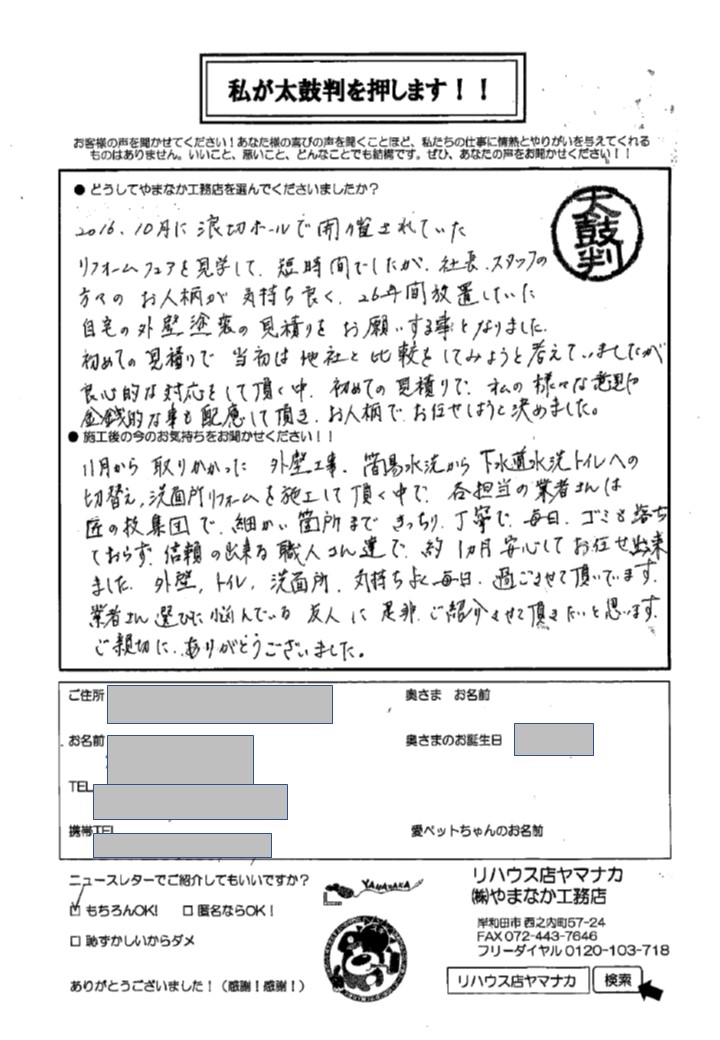 私が太鼓判を押します！！
お客様の声を聞かせてください！あなた様の喜びの声を聞くことほど、私たちの仕事に情熱とやりがいを与えてくれる
ものはありません。いいこと、悪いこと、どんなことでも結構です。ぜひ、あなたの声をお聞かせください！！
● どうしてやまなか工務店を選んでくださいましたか？
太鼓判
2016、10月に浪切ホールで開催されていた
リフォームフェアを見学して、短時間でしたが、社長、スタッフの
方々の お人柄が 気持ち良く、26年間放置していた
自宅の外壁塗装の見積りをお願いする事となりました。
初めての見積りで 当初は他社と比較をしてみようと考えていましたが
良心的な対応をして頂く中、初めての見積りで、私の様々な意見や
金銭的な事も配慮して頂き、お人柄でお任せしようと決めました。
● 施工後の今のお気持ちをお聞かせください！！
11月から取りかかった 外壁工事、簡易水洗から下水道水洗トイレへの
切替え、洗面所リフォームを施工して頂く中で、各担当の業者さんは
匠の技集団で、細かい箇所まできっちり、丁寧で、毎日、ゴミも落ち
ておらず、信頼の出来る職人さん達で、約1カ月安心してお任せ出来
ました。外壁、トイレ、洗面所、気持ちよく毎日、過ごさせて頂いています。
業者さん選びに悩んでいる友人に是非、ご紹介させて頂きたいと思います。
ご親切に、ありがとうございました。
ご住所
奥さま お名前
お名前
奥さまのお誕生日
TEL
携帯TEL
愛ペットちゃんのお名前
ニュースレターでご紹介してもいいですか？
☑ もちろんOK! □ 匿名ならOK！
□ 恥ずかしいからダメ
ありがとうございました！（感謝！感謝！）
YAMANAKA
リハウス店ヤマナカ
㈱やまなか工務店
岸和田市西之内町57-24
FAX 072-443-7646
フリーダイヤル 0120-103-718
リハウス店ヤマナカ 検索